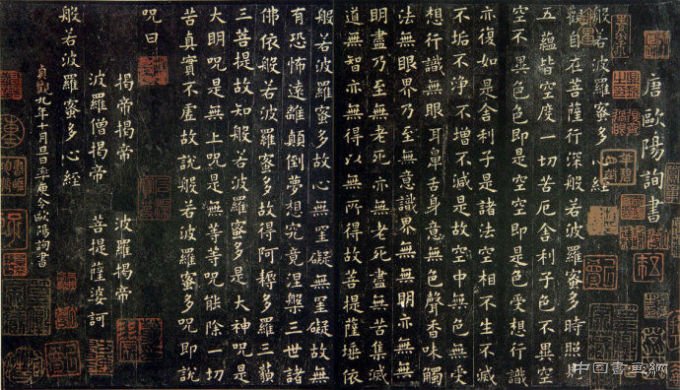 唐歐陽詢書
般若波羅蜜多心經
觀自在菩薩行深般若波羅蜜多時照
五蘊皆空度一切苦厄舍利子色不異空
空不異色色即是空空即是色受想行識
亦復如是舍利子是諸法空相不生不滅
不垢不淨不增不減是故空中無色無受
想行識無眼耳鼻舌身意無色聲香味觸
法無眼界乃至無意識界無無明亦無無
明盡乃至無老死亦無老死盡無苦集滅
道無智亦無得以無所得故菩提薩埵依
般若波羅蜜多故心無罣礙無罣礙故無
有恐怖遠離顛倒夢想究竟涅槃三世諸
佛依般若波羅蜜多故得阿耨多羅三藐
三菩提故知般若波羅蜜多是大神呪是
大明呪是無上呪是無等等呪能除一切
苦真實不虛故說般若波羅蜜多呪即說
呪曰
揭帝揭帝 波羅揭帝
波羅僧揭帝 菩提薩婆訶
般若波羅蜜多心經
貞觀九年十月旦日率更令歐陽詢書